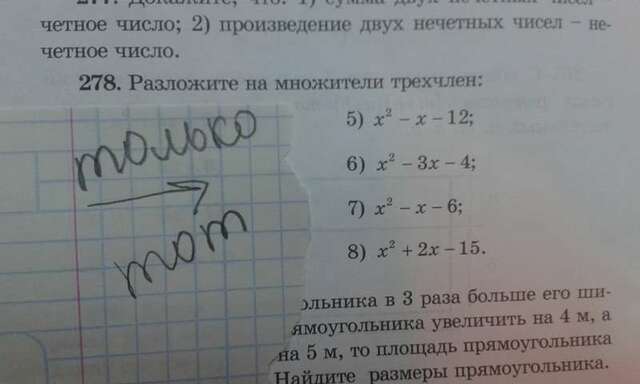 277. Докажите, что: 1) сумма двух нечетных чисел –
четное число; 2) произведение двух нечетных чисел – не-
четное число.
278. Разложите на множители трехчлен:
только
тот
5) x² – x – 12;
6) x² – 3x – 4;
7) x² – x – 6;
8) x² + 2x – 15.
ольника в 3 раза больше его ши-
рямоугольника увеличить на 4 м, а
на 5 м, то площадь прямоугольника
Найдите размеры прямоугольника.